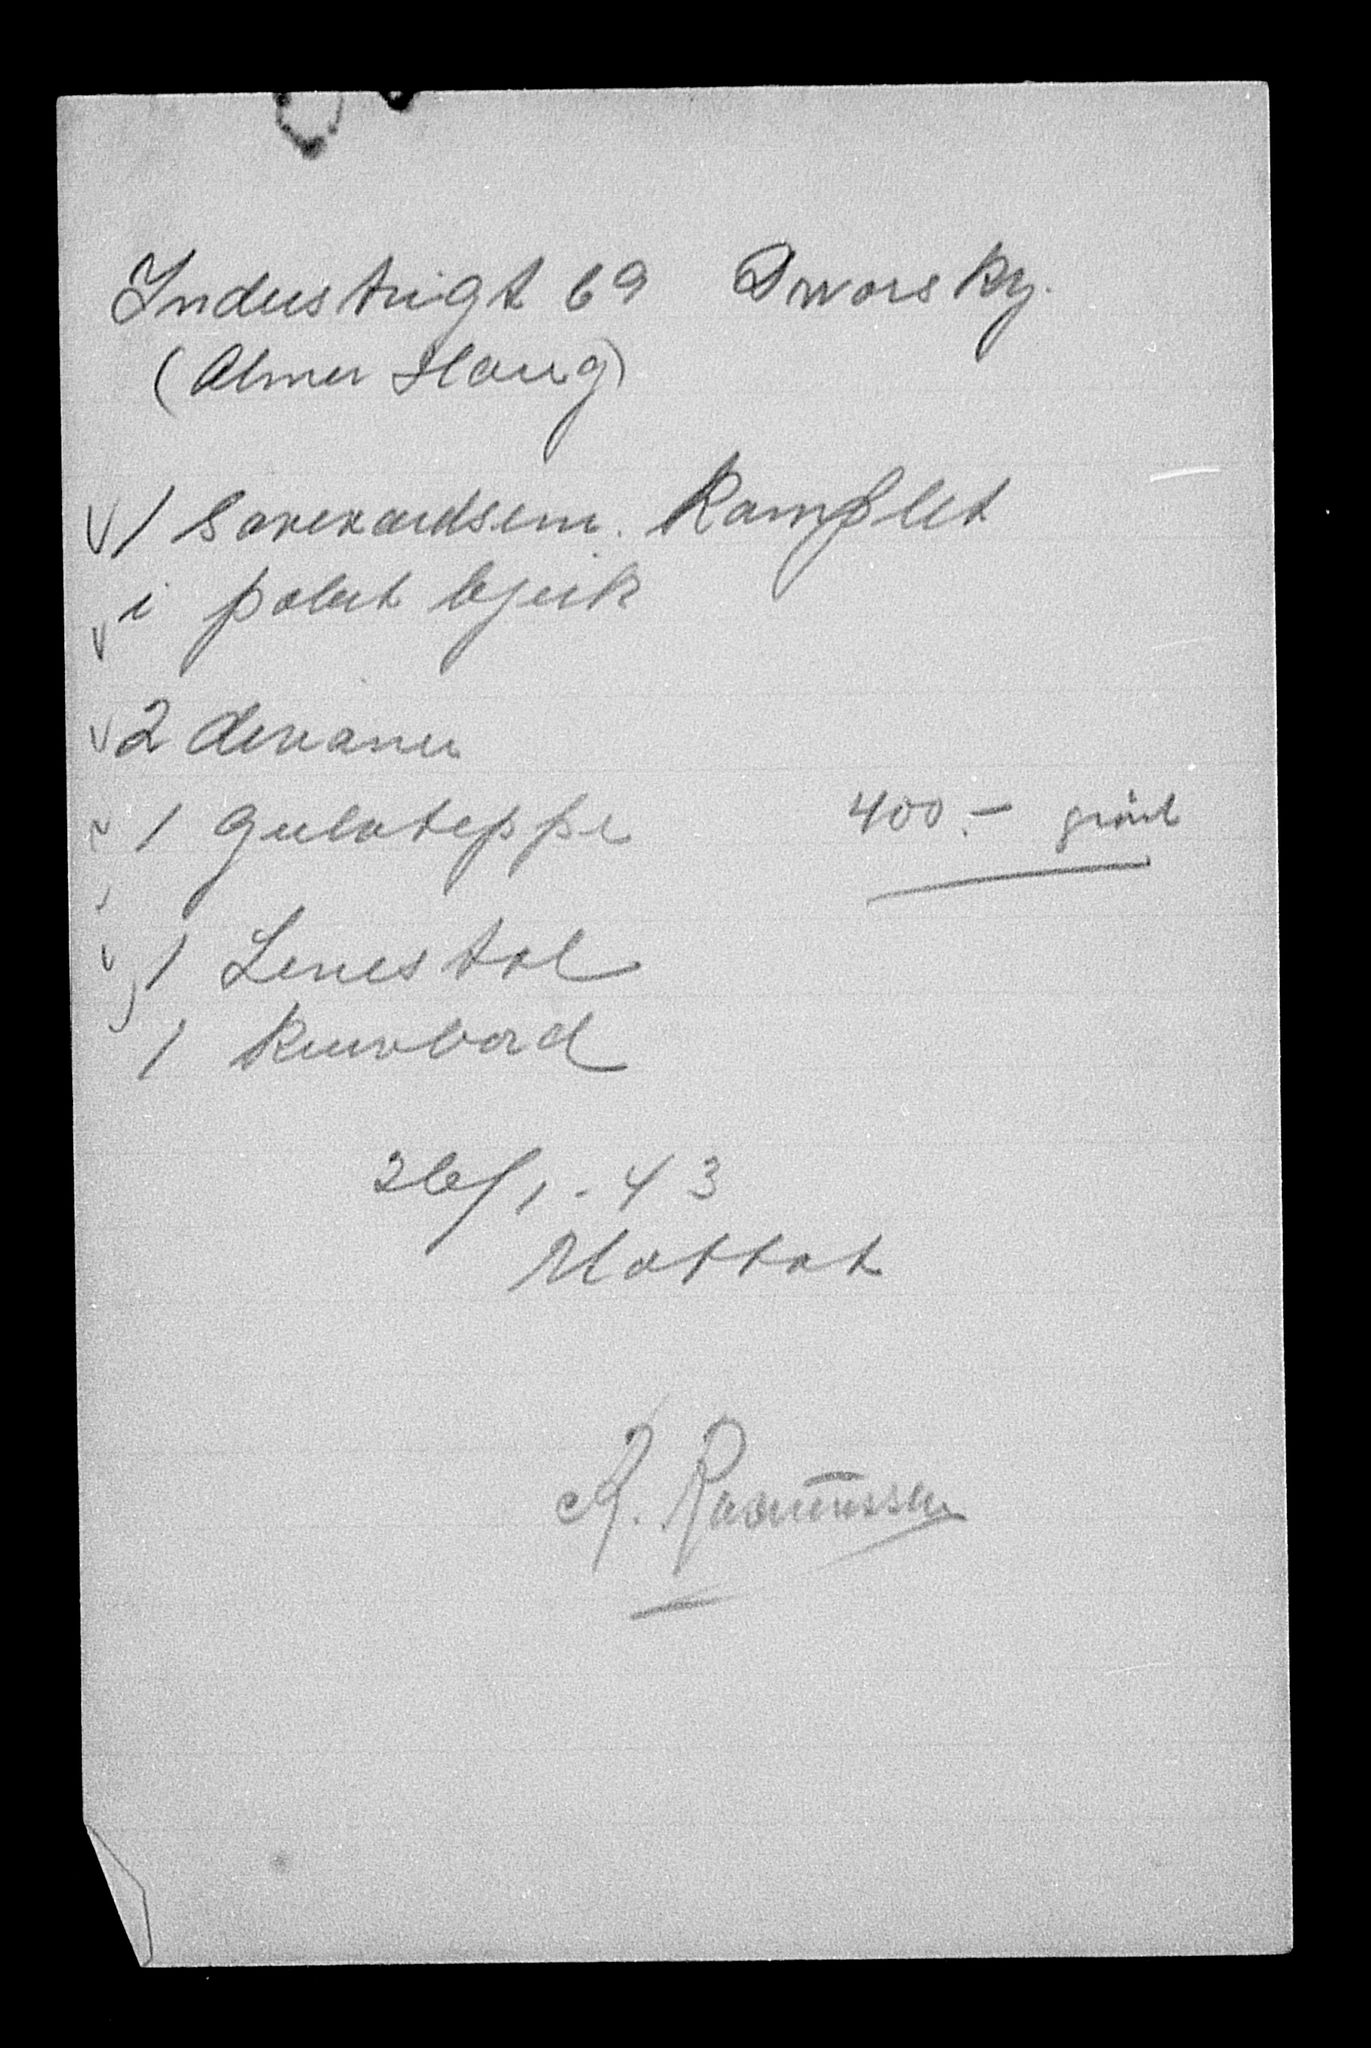 Industrigt 69 Dworsky.
(Almer Haug)
1 Soveværdsem. Komplet
i polert bjerk
2 divaner
1 Gulvteppe 400.-
1 Lenestol
1 Kurvbord
26/1-43
Mottat
R. Rasmussen